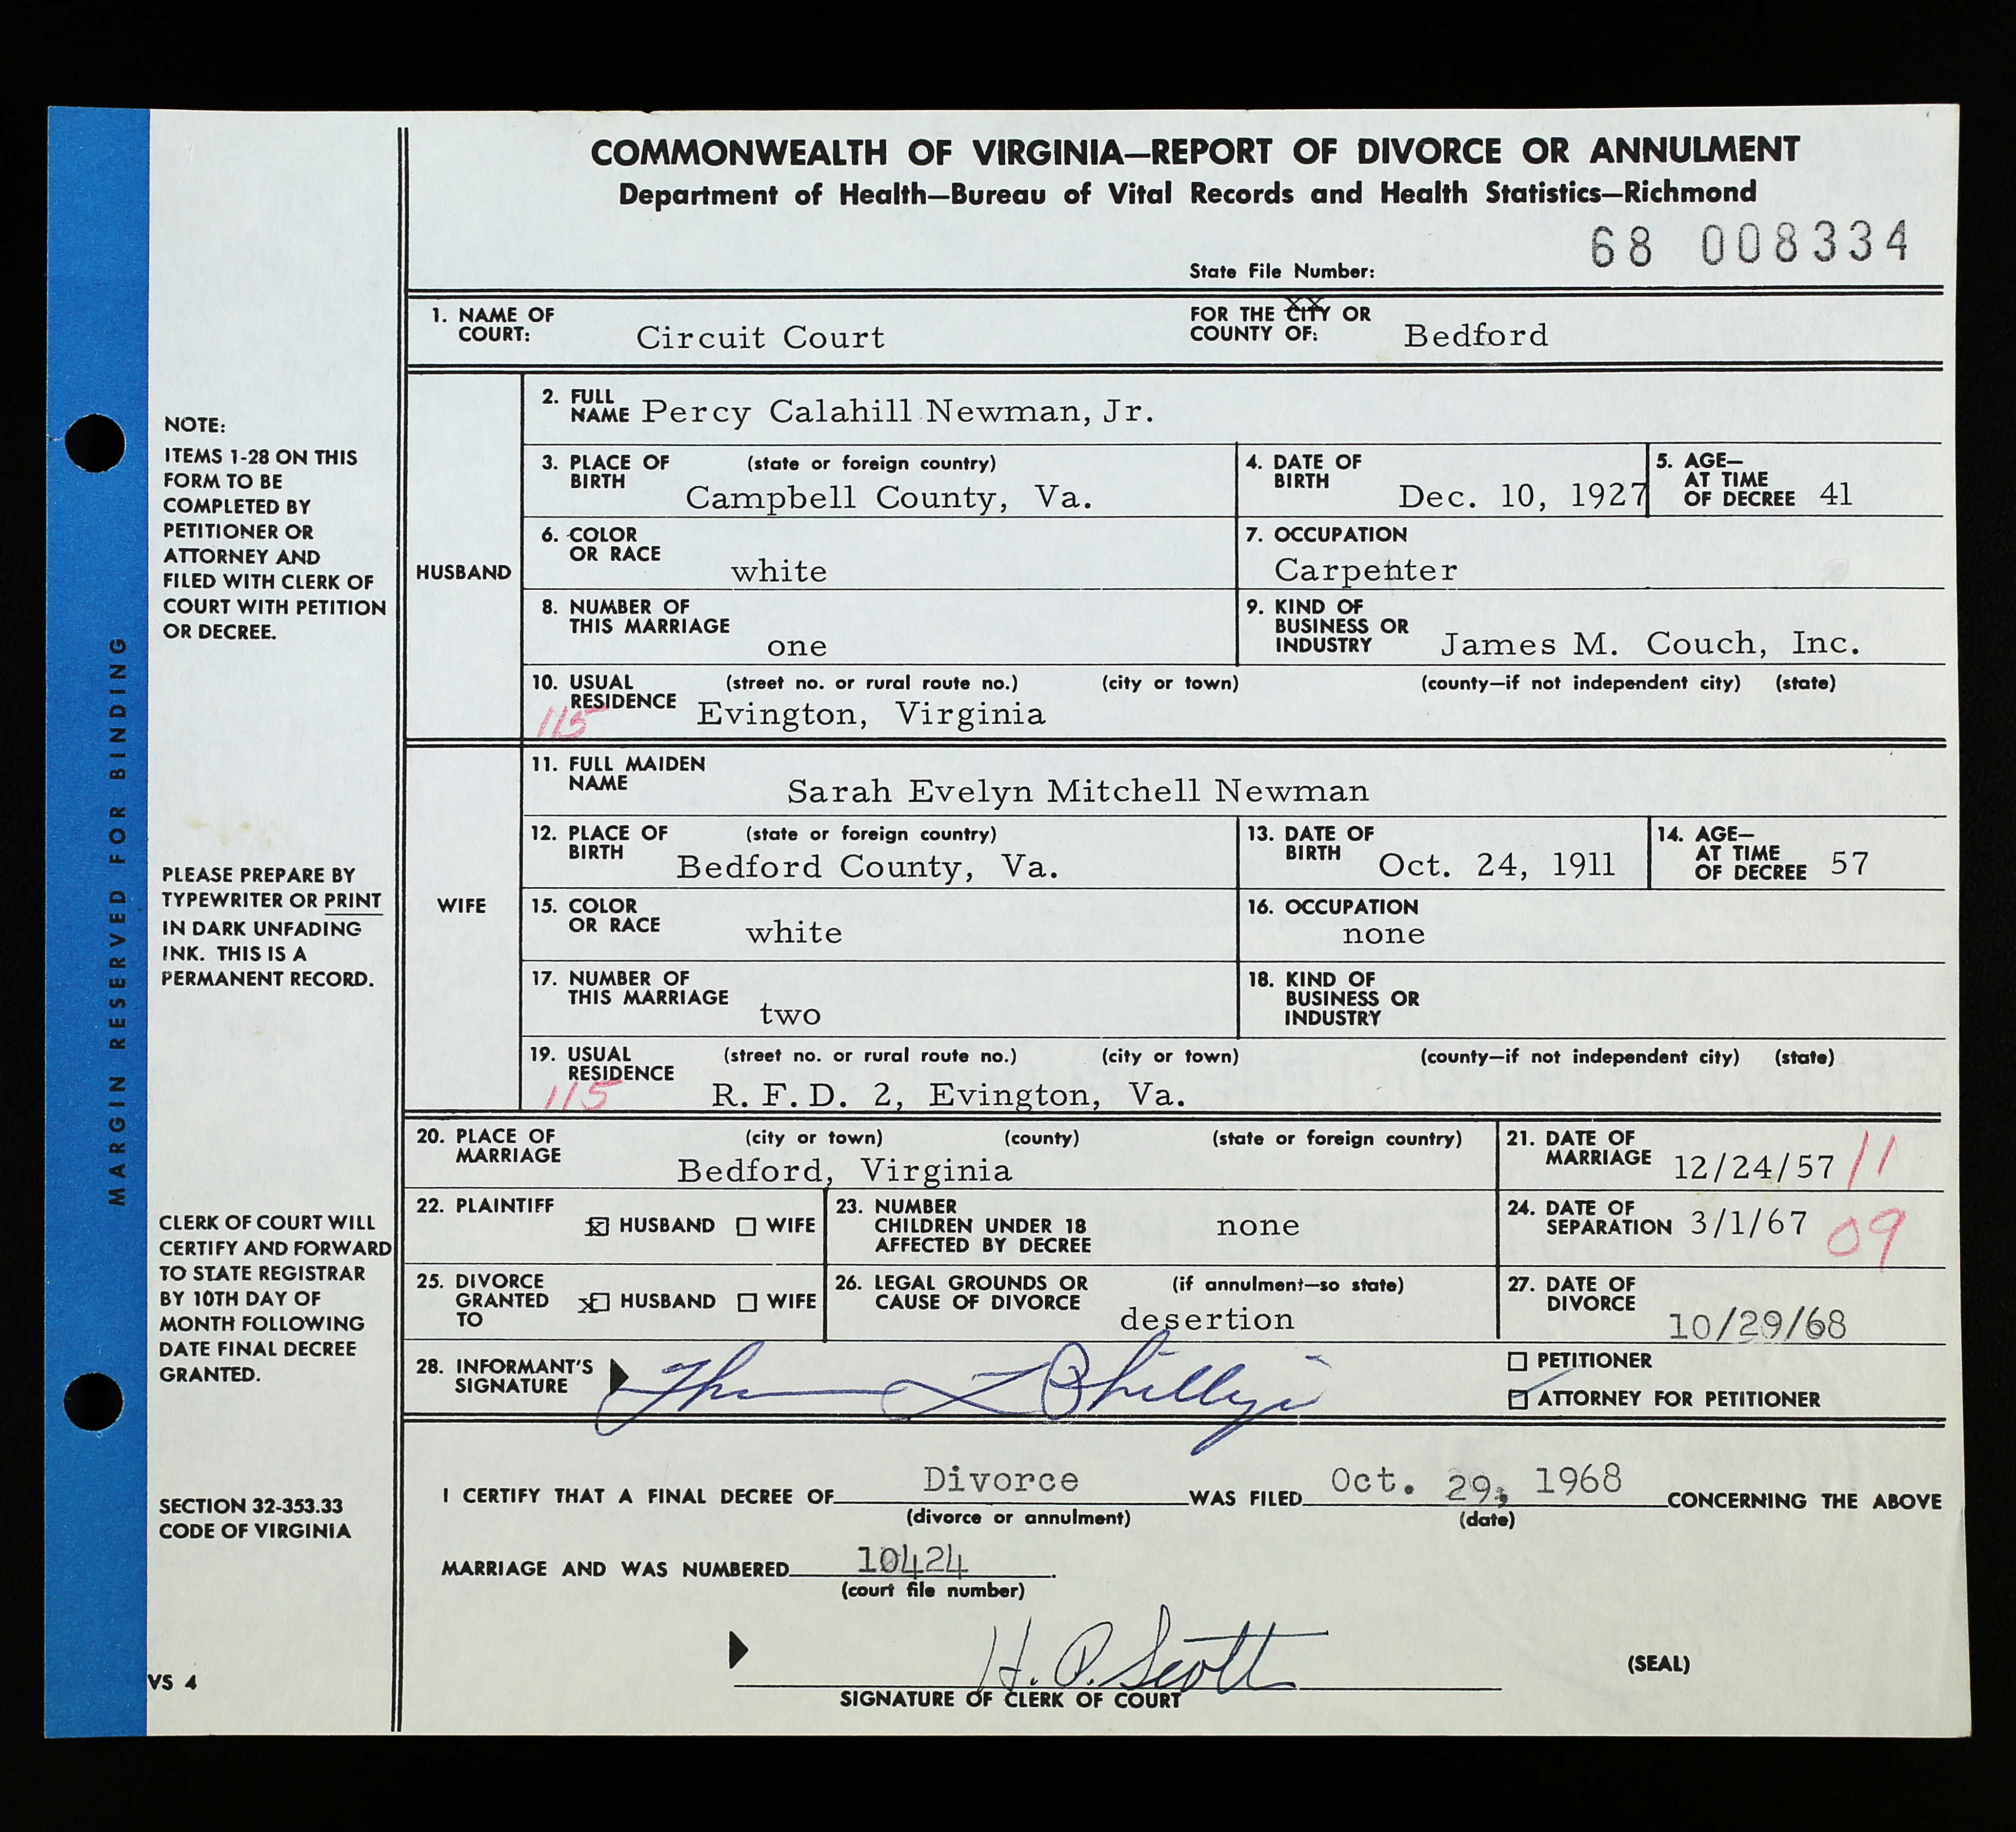 COMMONWEALTH OF VIRGINIA—REPORT OF DIVORCE OR ANNULMENT
Department of Health—Bureau of Vital Records and Health Statistics—Richmond
68 008334
State File Number:
1. NAME OF COURT: Circuit Court FOR THE CITY OR COUNTY OF: Bedford
XX
HUSBAND
2. FULL NAME Percy Calahill Newman, Jr.
3. PLACE OF BIRTH (state or foreign country) Campbell County, Va.
4. DATE OF BIRTH Dec. 10, 1927
5. AGE— AT TIME OF DECREE 41
6. COLOR OR RACE white
7. OCCUPATION Carpenter
8. NUMBER OF THIS MARRIAGE one
9. KIND OF BUSINESS OR INDUSTRY James M. Couch, Inc.
10. USUAL RESIDENCE (street no. or rural route no.) (city or town) (county—if not independent city) (state)
115 Evington, Virginia
WIFE
11. FULL MAIDEN NAME Sarah Evelyn Mitchell Newman
12. PLACE OF BIRTH (state or foreign country) Bedford County, Va.
13. DATE OF BIRTH Oct. 24, 1911
14. AGE— AT TIME OF DECREE 57
15. COLOR OR RACE white
16. OCCUPATION none
17. NUMBER OF THIS MARRIAGE two
18. KIND OF BUSINESS OR INDUSTRY
19. USUAL RESIDENCE (street no. or rural route no.) (city or town) (county—if not independent city) (state)
115 R. F. D. 2, Evington, Va.
20. PLACE OF MARRIAGE (city or town) (county) (state or foreign country) Bedford, Virginia
21. DATE OF MARRIAGE 12/24/57 11
22. PLAINTIFF x HUSBAND WIFE
23. NUMBER CHILDREN UNDER 18 AFFECTED BY DECREE none
24. DATE OF SEPARATION 3/1/67 09
25. DIVORCE GRANTED TO x HUSBAND WIFE
26. LEGAL GROUNDS OR CAUSE OF DIVORCE (if annulment—so state) desertion
27. DATE OF DIVORCE 10/29/68
28. INFORMANT'S SIGNATURE Phillips
PETITIONER
ATTORNEY FOR PETITIONER
I CERTIFY THAT A FINAL DECREE OF Divorce WAS FILED Oct. 29, 1968 CONCERNING THE ABOVE
(divorce or annulment) (date)
MARRIAGE AND WAS NUMBERED 10424.
(court file number)
H. P. Scott
SIGNATURE OF CLERK OF COURT
(SEAL)
MARGIN RESERVED FOR BINDING
NOTE:
ITEMS 1-28 ON THIS
FORM TO BE
COMPLETED BY
PETITIONER OR
ATTORNEY AND
FILED WITH CLERK OF
COURT WITH PETITION
OR DECREE.
PLEASE PREPARE BY
TYPEWRITER OR PRINT
IN DARK UNFADING
INK. THIS IS A
PERMANENT RECORD.
CLERK OF COURT WILL
CERTIFY AND FORWARD
TO STATE REGISTRAR
BY 10TH DAY OF
MONTH FOLLOWING
DATE FINAL DECREE
GRANTED.
SECTION 32-353.33
CODE OF VIRGINIA
VS 4